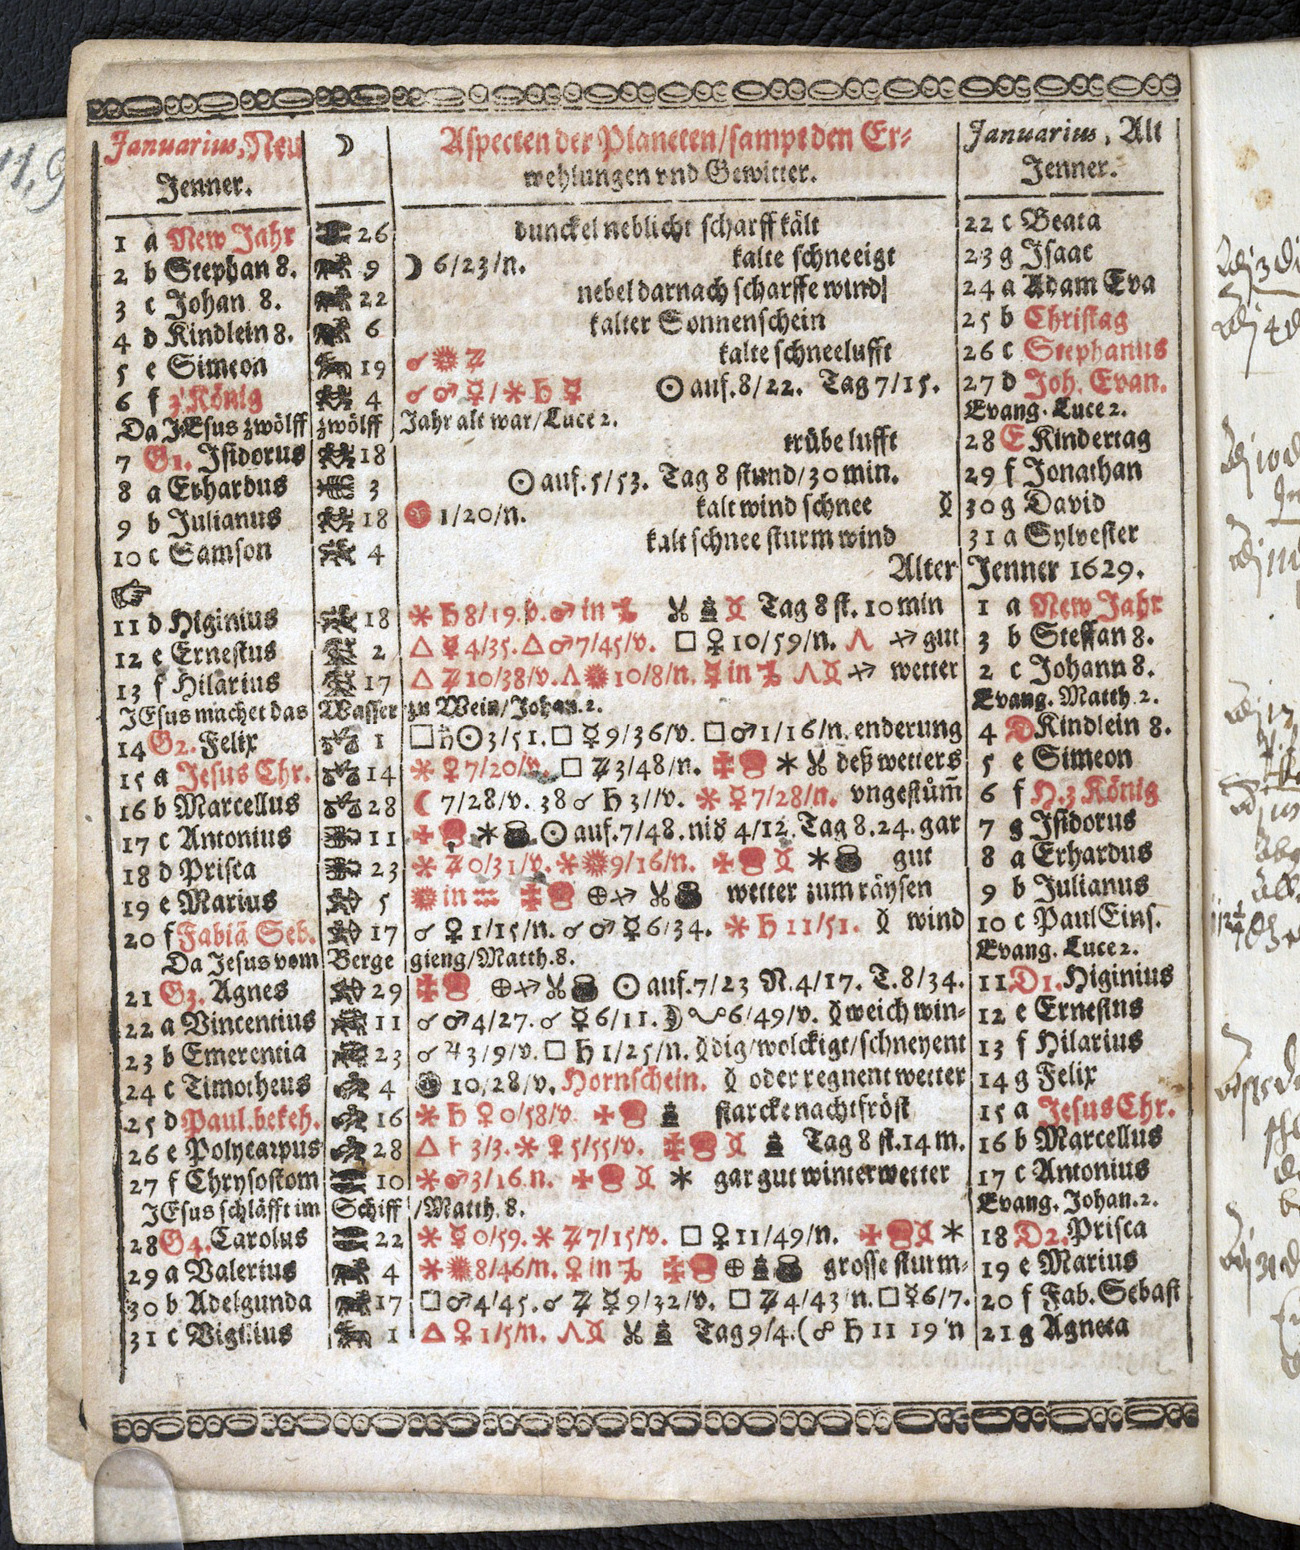 Januarius, Neu
Jenner.
☽
Aspecten der Planeten/sampt den Er-
wehlungen vnd Gewitter.
Januarius, Alt
Jenner.
1 a New Jahr 26 dunckel neblicht scharff kält 22 c Beata
2 b Stephan 8. 9 ☽ 6/23/n. kalte schneeigt 23 g Isaac
3 c Johan 8. 22 nebel darnach scharffe wind 24 a Adam Eva
4 d Kindlein 8. 6 kalter Sonnenschein 25 b Christag
5 e Simeon 19 ☌ ☀ ♃ kalte schneelufft 26 c Stephanus
6 f 3 König 4 ☌ ♂ ☿/⚹ ♄ ☿ ☉ auf. 8/22. Tag 7/15. 27 d Joh. Evan.
Da JEsus zwölff zwölff Jahr alt war/Luce 2. Evang. Luce 2.
7 G1. Isidorus 18 trübe lufft 28 E Kindertag
8 a Erhardus 3 ☉ auf. 5/53. Tag 8 stund/30 min. 29 f Jonathan
9 b Julianus 18 1/20/n. kalt wind schnee ☿ 30 g David
10 c Samson 4 kalt schnee sturmwind 31 a Sylvester
☞ Alter Jenner 1629.
11 d Higinius 18 ⚹ ♄ 8/19.v. ♂ in ♑ Tag 8 st. 10 min 1 a New Jahr
12 e Ernestus 2 △ ☿ 4/35. △ ♂ 7/45/v. □ ♀ 10/59/n. gut 3 b Steffan 8.
13 f Hilarius 17 △ ♃ 10/38/v. △ ☀ 10/8/n. ☿ in ♑ wetter 2 c Johann 8.
JEsus machet das Wasser zu Wein/Johan. 2. Evang. Matth. 2.
14 G2. Felix 1 □ ♄ ☉ 3/51. □ ☿ 9/36/v. □ ♂ 1/16/n. enderung 4 D Kindlein 8.
15 a Jesus Chr. 14 ⚹ ♀ 7/20/v. □ ♃ 3/48/n. deß wetters 5 e Simeon
16 b Marcellus 28 ☾ 7/28/v. 38 ☌ ♄ 3//v. ⚹ ☿ 7/28/n. vngestüm̃ 6 f H. 3 König
17 c Antonius 11 ☉ auf. 7/48. nid 4/12. Tag 8.24. gar 7 g Isidorus
18 d Prisca 23 ⚹ ♃ 0/31/v. ⚹ ☀ 9/16/n. gut 8 a Erhardus
19 e Marius 5 ☀ in ♒ wetter zum räysen 9 b Julianus
20 f Fabiã Seb. 17 ☌ ♀ 1/15/n. ☌ ♂ ☿ 6/34. ⚹ ♄ 11/51. ☿ wind 10 c Paul Eins.
Da Jesus vom Berge gieng/Matth. 8. Evang. Luce 2.
21 G3. Agnes 29 ☉ auf. 7/23 N. 4/17. T. 8/34. 11 D1. Higinius
22 a Vincentius 11 ☌ ♂ 4/27. ☌ ☿ 6/11. 6/49/v. weich win- 12 e Ernestus
23 b Emerentia 23 ☌ ♃ 3/9/v. □ ♄ 1/25/n. dig/wolckigt/schneyent 13 f Hilarius
24 c Timotheus 4 10/28/v. Hornschein. oder regnent wetter 14 g Felix
25 d Paul. bekeh. 16 ⚹ ♄ ♀ 0/58/v. starcke nachtfröst 15 a Jesus Chr.
26 e Polycarpus 28 △ 3/3. ⚹ ♀ 5/55/v. Tag 8 st. 14 m. 16 b Marcellus
27 f Chrysostom 10 ⚹ ♂ 3/16.n. gar gut winterwetter 17 c Antonius
JEsus schläfft im Schiff /Matth. 8. Evang. Johan. 2.
28 G4. Carolus 22 ⚹ ☿ 0/59. ⚹ ♃ 7/15/v. □ ♀ 11/49/n. 18 D2. Prisca
29 a Valerius 4 ⚹ ☀ 8/46/n. ♀ in ♑ grosse sturm- 19 e Marius
30 b Adelgunda 17 □ ♂ 4/45. ☌ ♃ ☿ 9/32/v. □ ♃ 4/43 n. □ ☿ 6/7. 20 f Fab. Sebast
31 c Vigilius 1 △ ♀ 1/5/n. Tag 9/4. (☍ ♄ 11 19 n 21 g Agneta